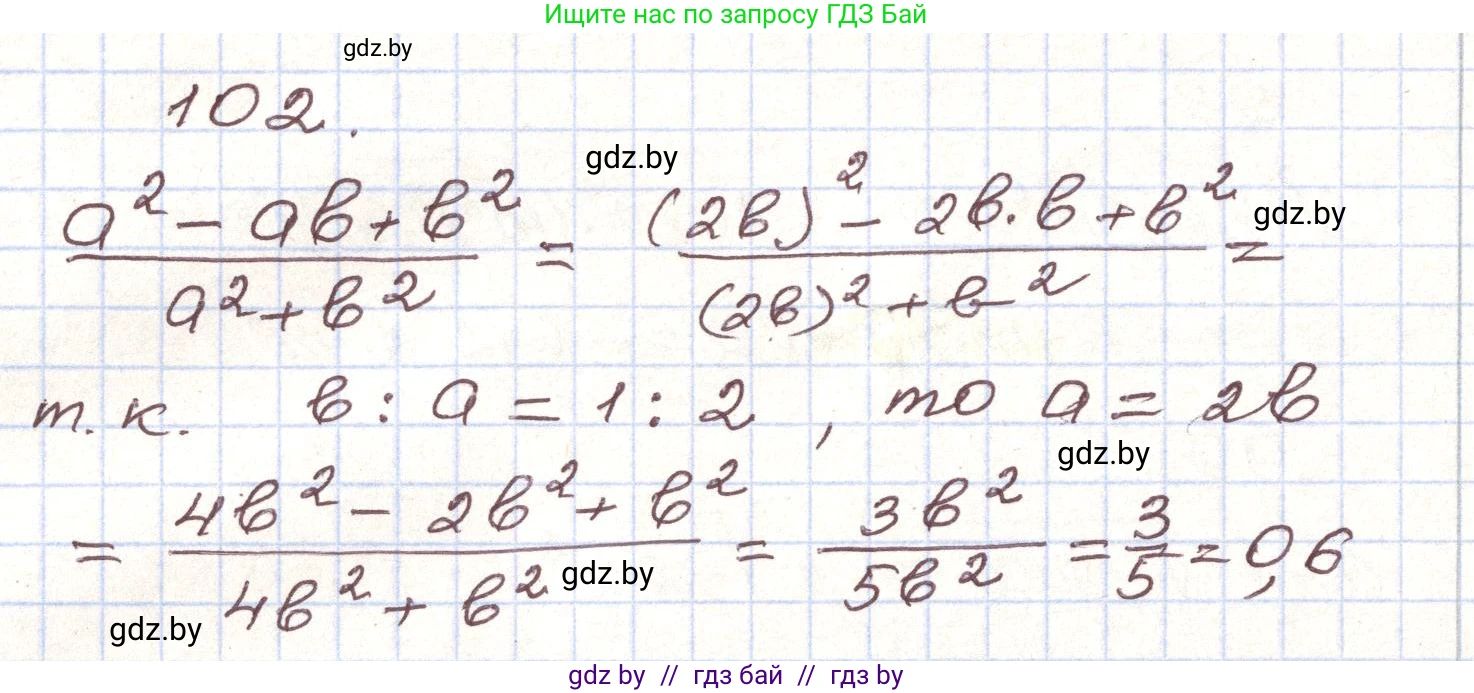 Ищите нас по запросу ГДЗ Бай
gdz.by
102.
gdz.by
a² - ab + b² / a² + b² = (2b)² - 2b·b + b² / (2b)² + b² =
gdz.by
т.к. b : a = 1 : 2, то a = 2b
gdz.by
= 4b² - 2b² + b² / 4b² + b² = 3b² / 5b² = 3/5 = 0,6
gdz.by
gdz.by
gdz by // гдз бай // гдз by